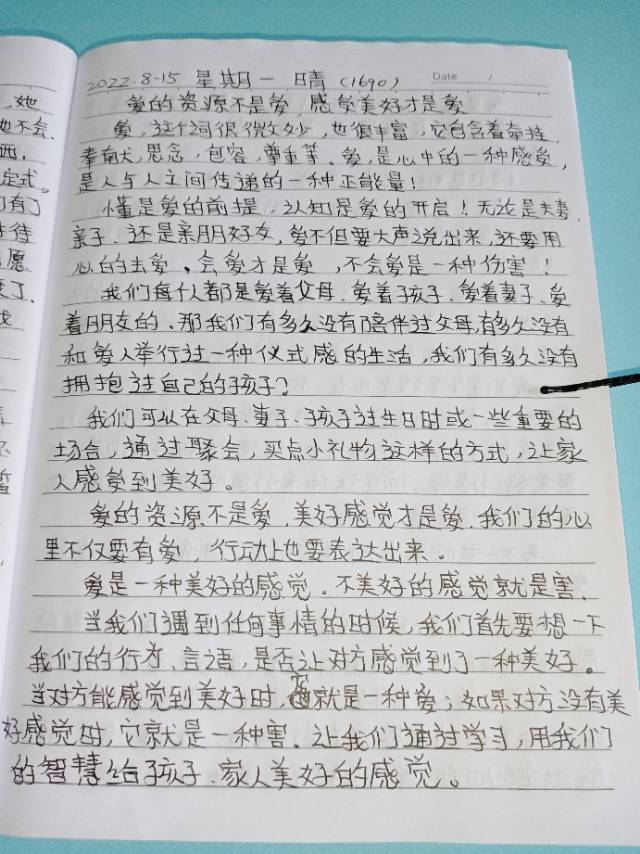 2022.8-15 星期一 晴(1690)
Date /
爱的资源不是爱,感觉美好才是爱
爱,这个词很微妙,也很丰富,它包含着牵挂,
奉献,思念,包容,尊重等。爱,是心中的一种感受,
是人与人之间传递的一种正能量!
懂是爱的前提,认知是爱的开启!无论是夫妻,
亲子、还是亲朋好友,爱不但要大声说出来,还要用
心的去爱、会爱才是爱,不会爱是一种伤害!
我们每个人都是爱着父母、爱着孩子、爱着妻子、爱
着朋友的、那我们有多久没有陪伴过父母,有多久没有
和爱人举行过一种仪式感的生活,我们有多久没有
拥抱过自己的孩子?
我们可以在父母、妻子、孩子过生日时或一些重要的
场合,通过聚会,买点小礼物这样的方式,让家
人感受到美好。
爱的资源不是爱,美好感觉才是爱,我们的心
里不仅要有爱,行动上也要表达出来.
爱是一种美好的感觉.不美好的感觉就是害.
当我们遇到任何事情的时候,我们首先要想一下
我们的行为、言语,是否让对方感觉到了一种美好。
当对方能感觉到美好时,它就是一种爱;如果对方没有美
好感觉时,它就是一种害.让我们通过学习,用我们
的智慧给孩子、家人美好的感觉。
她
她不会.
西,
定式。
了
待
愿
了.